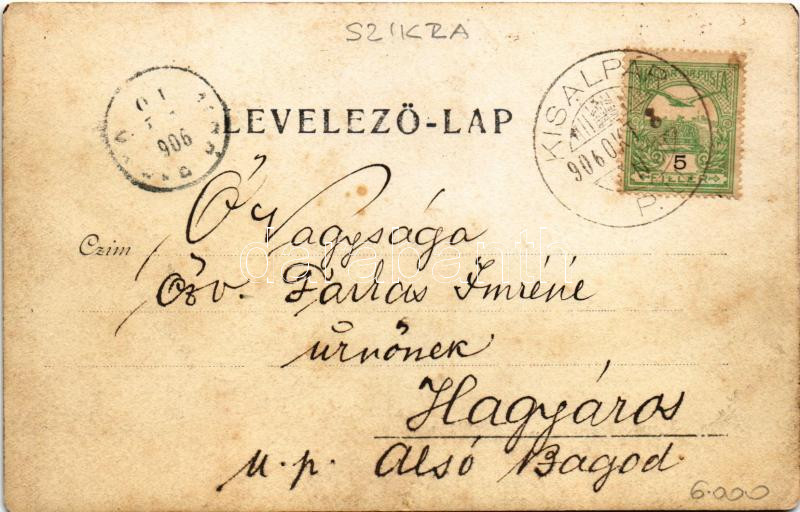 SZIKRA
LEVELEZŐ-LAP
KISALPÁR
906
906 OKT
P.
MAGYAR KIR. POSTA
5
FILLÉR
Czim
Ő Nagysága
özv. Farkas Imréné
úrnőnek
Hagyáros
u. p. Alsó Bagod
6.000
darabanth